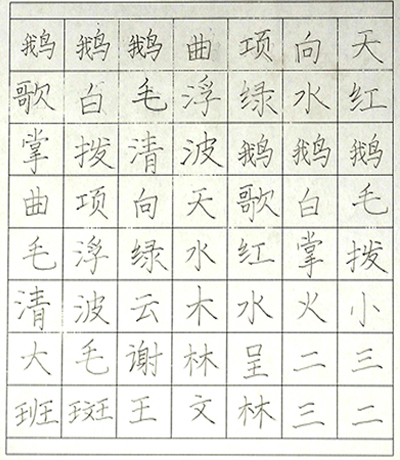 鹅鹅鹅曲项向天
歌白毛浮绿水红
掌拨清波鹅鹅鹅
曲项向天歌白毛
毛浮绿水红掌拨
清波云木水火小
大毛谢林呈二三
班斑王文林三二